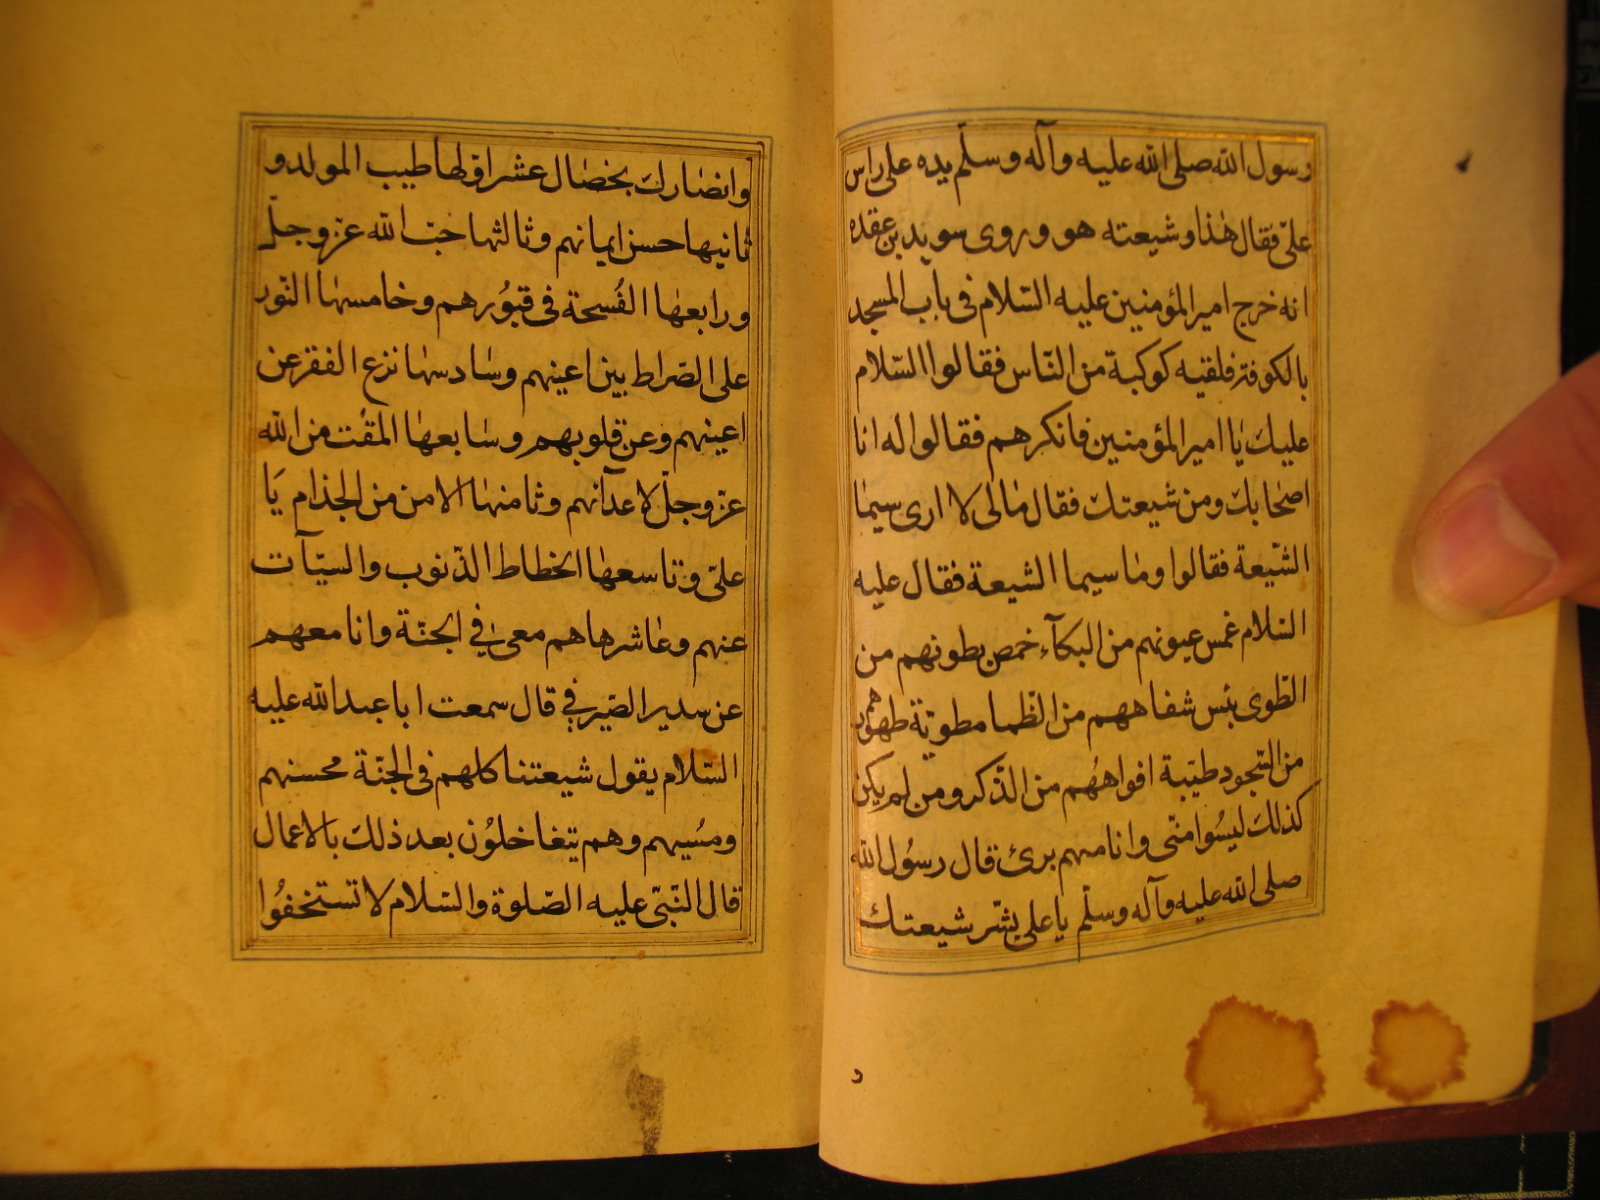 رسول الله صلى الله عليه وآله وسلّم يده على راس
علىّ فقال هٰذا وشيعته هو وروى سويد بن عقده
انه خرج امير المؤمنين عليه السّلام فى باب المسجد
بالكوفة فلقيه كوكبة من النّاس فقالوا السّلام
عليك يٰا امير المؤمنين فانكرهم فقالوا له انا
اصحٰابك ومن شيعتك فقال مٰا لى لا ارى سيمٰا
الشّيعة فقالوا ومٰا سيما الشيعة فقال عليه
السّلام غمس عيونهم من البكآء خمص بطونهم من
الطّوى يبس شفاههم من الظما مطويّة ظهورهم
من السّجود طيّبة افواههُم من الذّكر ومن لم يكن
كذلك ليسُوا منّى وانا منهم برئ قال رسُول الله
صلى الله عليه وآله وسلّم يا على بشّر شيعتك
د
وانصٰارك بخصٰال عشر اوّلها طيب المولد و
ثانيها حسن ايمانهم وثالثها حبّ الله عزّ وجلّ
ورابعهٰا الفُسحة فى قبوُرهم وخامسهٰا النّور
على الصّراط بين اعينهم وسٰادسهٰا نزع الفقر عن
اعينهم وعن قلوبهم وسٰابعهٰا المقت من الله
عزّ وجلّ لاعدآئهم وثامنهٰا الامن من الجذام يَا
علىّ وتاسعهٰا انحطاط الذّنوب والسيّآت
عنهم وعٰاشرها هم معى فى الجنّة وانا معهم
عن سدير الصّيرفى قال سمعت ابا عبد الله عليه
السّلام يقول شيعتنا كلهم فى الجنّة محسنهم
ومسُيهم وهم يتفاضلوُن بعد ذلك بالاعمال
قال النّبىّ عليه الصّلوة والسّلام لا تستخفوُا